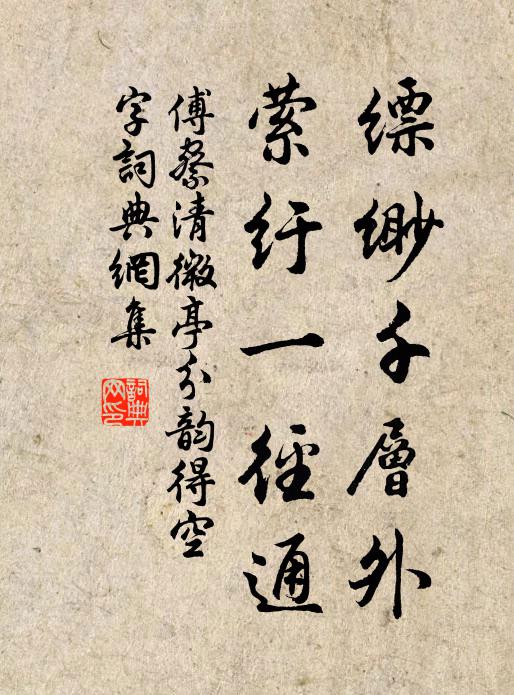 縹緲千層外
縈紆一徑通
傅察清微亭分韵得空
字詞典網集
詞典網印